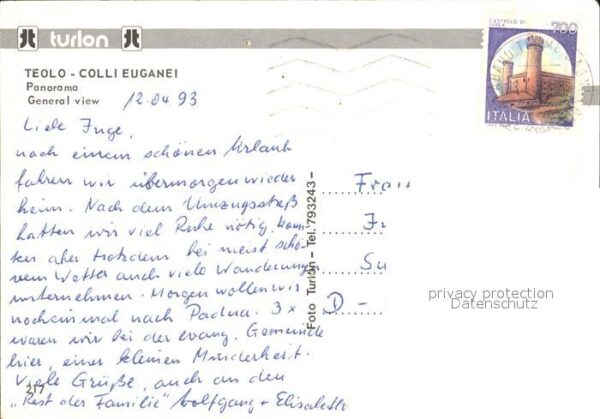 turlon
TEOLO - COLLI EUGANEI
Panorama
General view
12.04.93
CASTELLO DI
700
ITALIA
Liebe Inge,
nach einem schönen Urlaub
fahren wir übermorgen wieder
heim. Nach dem Umzugsstreß
hatten wir viel Ruhe nötig, konn-
ten aber trotzdem bei meist schö-
nem Wetter auch viele Wanderung
unternehmen. Morgen wollen wir
noch einmal nach Padua. 3 x
waren wir bei der evang. Gemeinde
hier, einer kleinen Minderheit.
Viele Grüße, auch an den
"Rest der Familie" Wolfgang + Elisabeth
217
Foto Turlon - Tel. 793243-
Frau
D-
privacy protection
Datenschutz